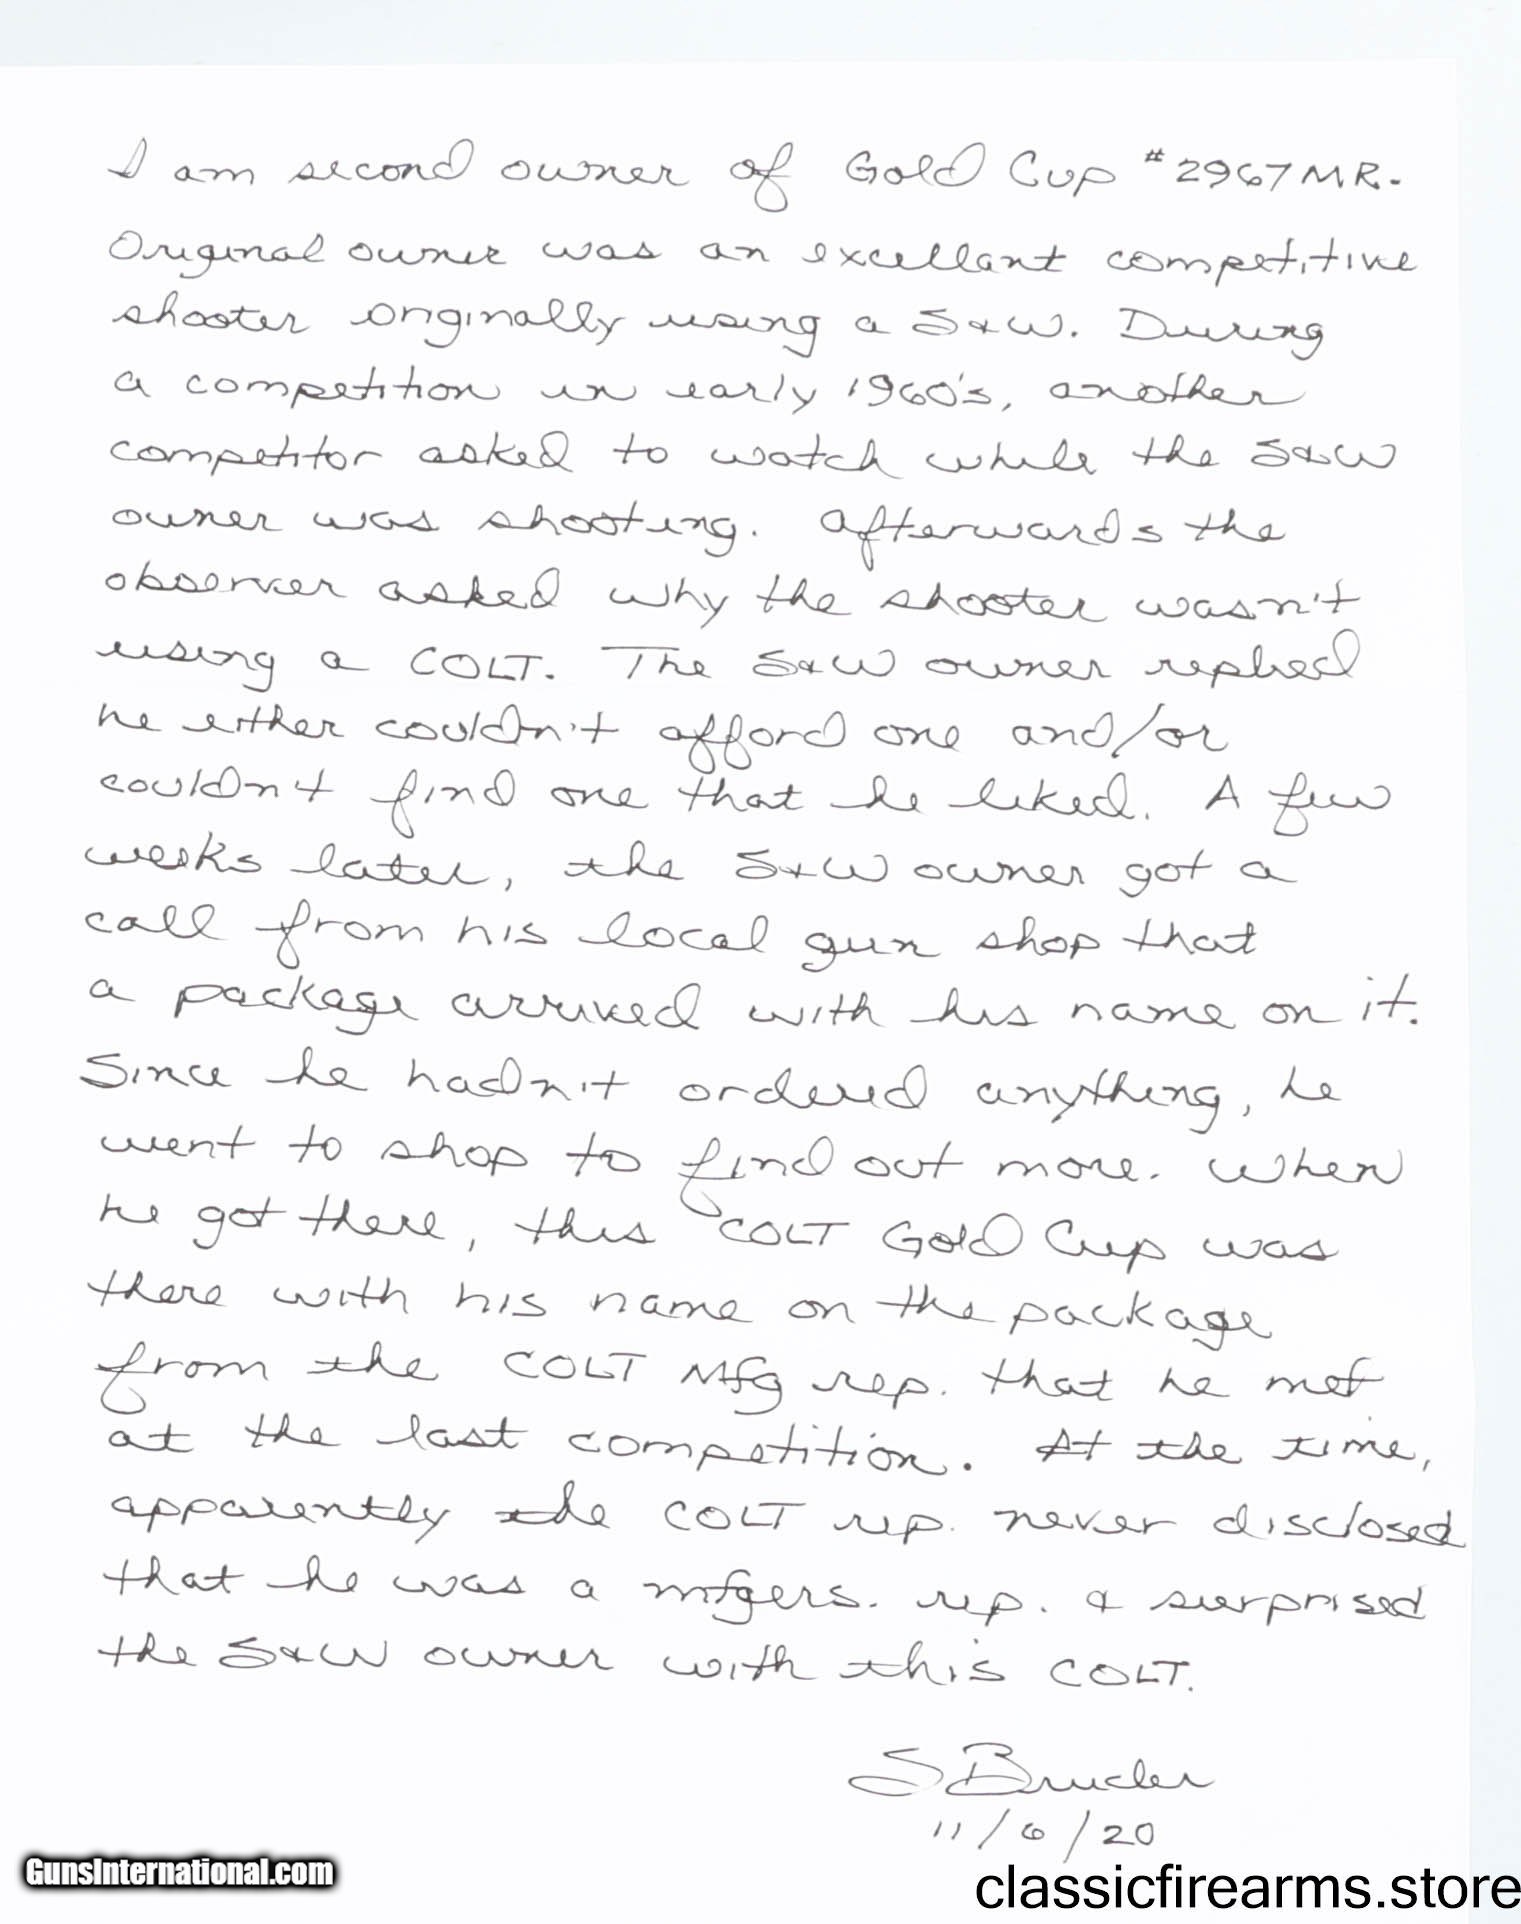 I am second owner of Gold Cup #2967MR.
Original owner was an excellant competitive
shooter originally using a S&W. During
a competition in early 1960's, another
competitor asked to watch while the S&W
owner was shooting. Afterwards the
observer asked why the shooter wasn't
using a COLT. The S&W owner replied
he either couldn't afford one and/or
couldn't find one that he liked. A few
weeks later, the S&W owner got a
call from his local gun shop that
a package arrived with his name on it.
Since he hadn't ordered anything, he
went to shop to find out more. When
he got there, this COLT Gold Cup was
there with his name on the package
from the COLT Mfg rep. that he met
at the last competition. At the time,
apparently the COLT rep. never disclosed
that he was a mfgers. rep. & surprised
the S&W owner with this COLT.
S Bruder
11/6/20
GunsInternational.com
classicfirearms.store